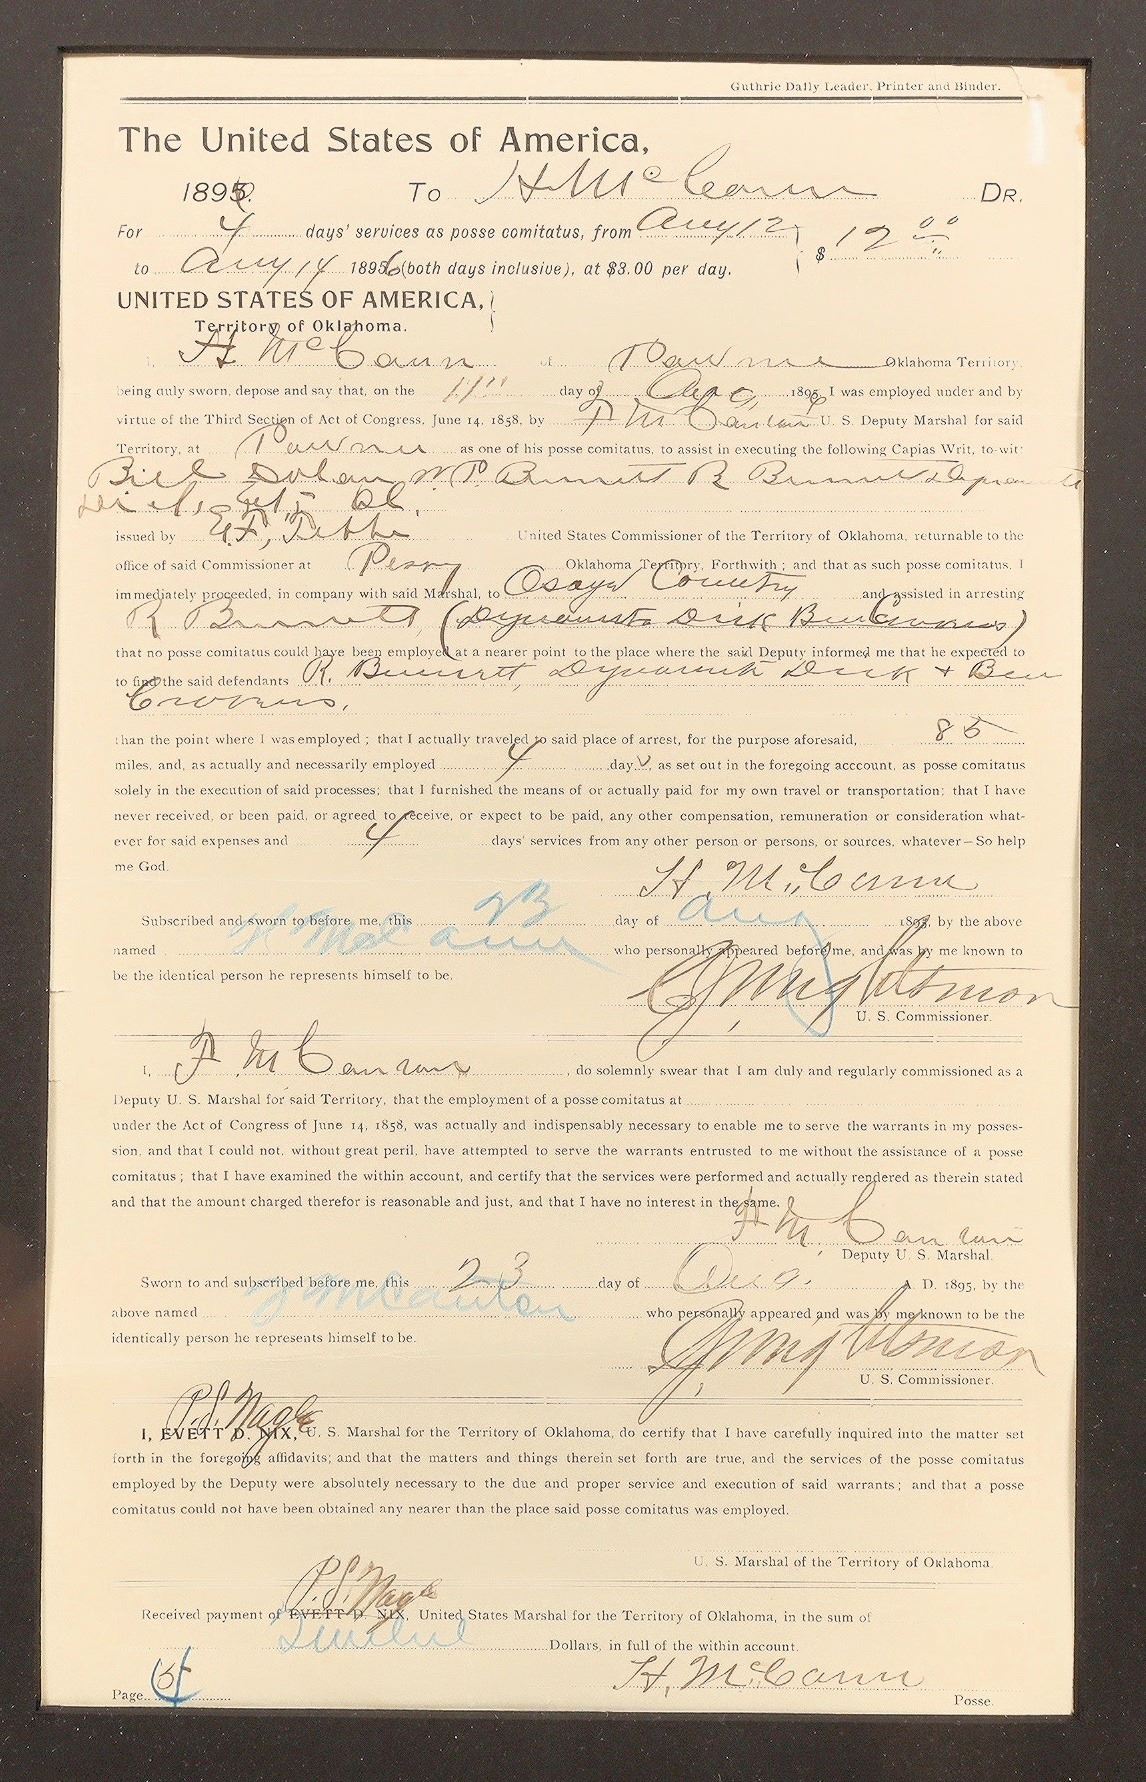 Guthrie Daily Leader, Printer and Binder.
The United States of America,
1896. To H McCann DR.
For 4 days' services as posse comitatus, from Aug 12
to Aug 14 1896 (both days inclusive), at $3.00 per day. $ 12 00
UNITED STATES OF AMERICA,
Territory of Oklahoma.
I, H McCann of Pawnee Oklahoma Territory,
being duly sworn, depose and say that, on the 11" day of Aug, 1896 I was employed under and by
virtue of the Third Section of Act of Congress, June 14, 1858, by F M Canton U. S. Deputy Marshal for said
Territory, at Pawnee as one of his posse comitatus, to assist in executing the following Capias Writ, to-wit:
Bill Dolan W. P. Bennett R Bennett
Dick, et. al.
issued by United States Commissioner of the Territory of Oklahoma, returnable to the
office of said Commissioner at Perry Oklahoma Territory, Forthwith; and that as such posse comitatus, I
immediately proceeded, in company with said Marshal, to Osage Country and assisted in arresting
R Bennett, (Dynamite Dick Ben Cravens)
that no posse comitatus could have been employed at a nearer point to the place where the said Deputy informed me that he expected to
to find the said defendants R. Bennett, Dynamite Dick + Ben
Cravens.
than the point where I was employed; that I actually traveled to said place of arrest, for the purpose aforesaid, 85
miles, and, as actually and necessarily employed 4 days, as set out in the foregoing acccount, as posse comitatus
solely in the execution of said processes; that I furnished the means of or actually paid for my own travel or transportation; that I have
never received, or been paid, or agreed to receive, or expect to be paid, any other compensation, remuneration or consideration what-
ever for said expenses and 4 days' services from any other person or persons, or sources, whatever—So help
me God.
H. McCann
Subscribed and sworn to before me, this 23 day of Aug 1896, by the above
named H McCann who personally appeared before me, and was by me known to
be the identical person he represents himself to be.
U. S. Commissioner.
I, F M Canton, do solemnly swear that I am duly and regularly commissioned as a
Deputy U. S. Marshal for said Territory, that the employment of a posse comitatus at
under the Act of Congress of June 14, 1858, was actually and indispensably necessary to enable me to serve the warrants in my posses-
sion, and that I could not, without great peril, have attempted to serve the warrants entrusted to me without the assistance of a posse
comitatus; that I have examined the within account, and certify that the services were performed and actually rendered as therein stated
and that the amount charged therefor is reasonable and just, and that I have no interest in the same.
F M. Canton
Deputy U. S. Marshal.
Sworn to and subscribed before me, this 23 day of Aug. A. D. 1895, by the
above named F M Canton who personally appeared and was by me known to be the
identically person he represents himself to be.
U. S. Commissioner.
P. S. Nagle
I, EVETT D. NIX, U. S. Marshal for the Territory of Oklahoma, do certify that I have carefully inquired into the matter set
forth in the foregoing affidavits; and that the matters and things therein set forth are true, and the services of the posse comitatus
employed by the Deputy were absolutely necessary to the due and proper service and execution of said warrants; and that a posse
comitatus could not have been obtained any nearer than the place said posse comitatus was employed.
U. S. Marshal of the Territory of Oklahoma.
P. S. Nagle
Received payment of EVETT D. NIX, United States Marshal for the Territory of Oklahoma, in the sum of
Twelve Dollars, in full of the within account.
H. McCann
Page Posse.